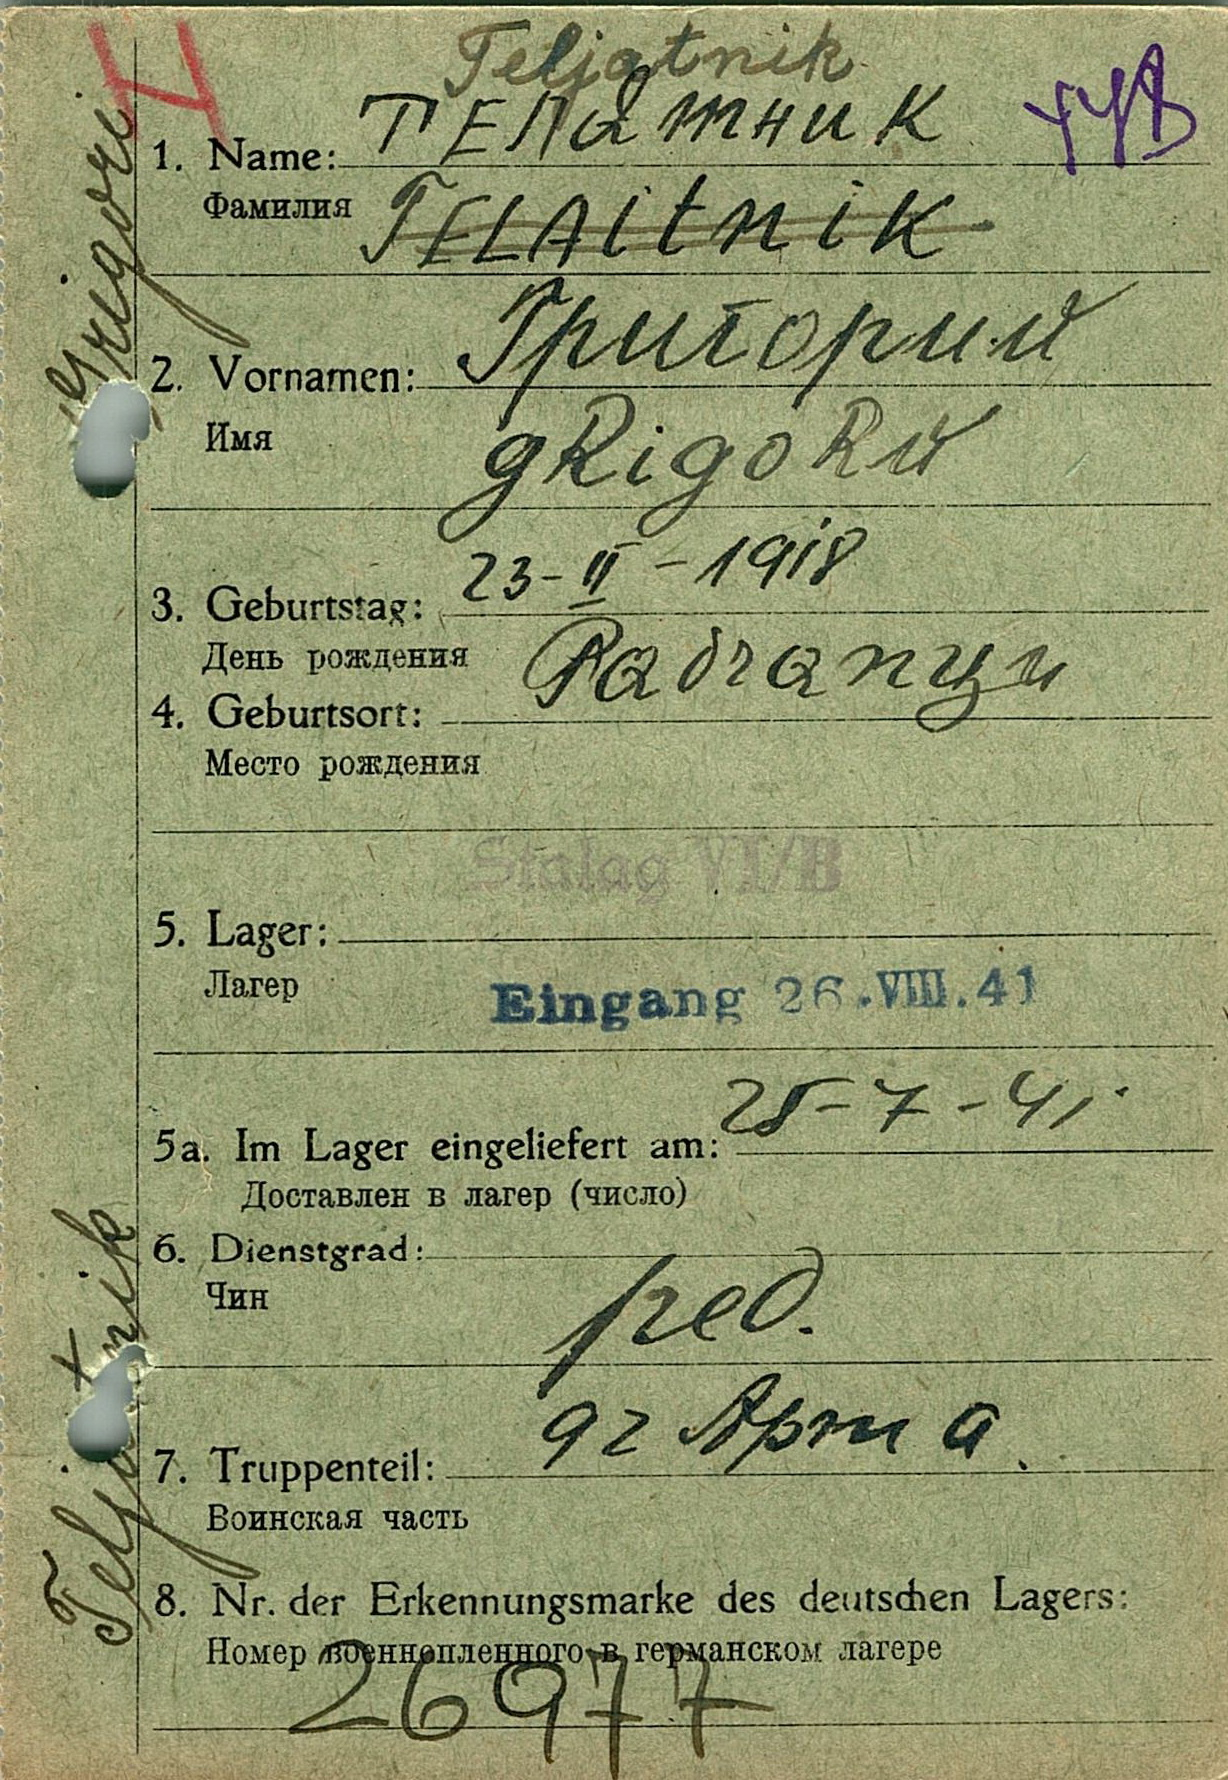 Teljatnik
1. Name: ТЕЛЯТНИК
Фамилия TELAitnik
2. Vornamen: Григорий
Имя gRigoRй
3. Geburtstag: 23-II-1918
День рождения
4. Geburtsort:
Место рождения
Stalag VI/B
5. Lager:
Лагер Eingang 26.VIII.41
5a. Im Lager eingeliefert am: 25-7-41
Доставлен в лагер (число)
6. Dienstgrad:
Чин
7. Truppenteil:
Воинская часть
8. Nr. der Erkennungsmarke des deutschen Lagers:
Номер военнопленного в германском лагере
26977
Teljatnik Grigori